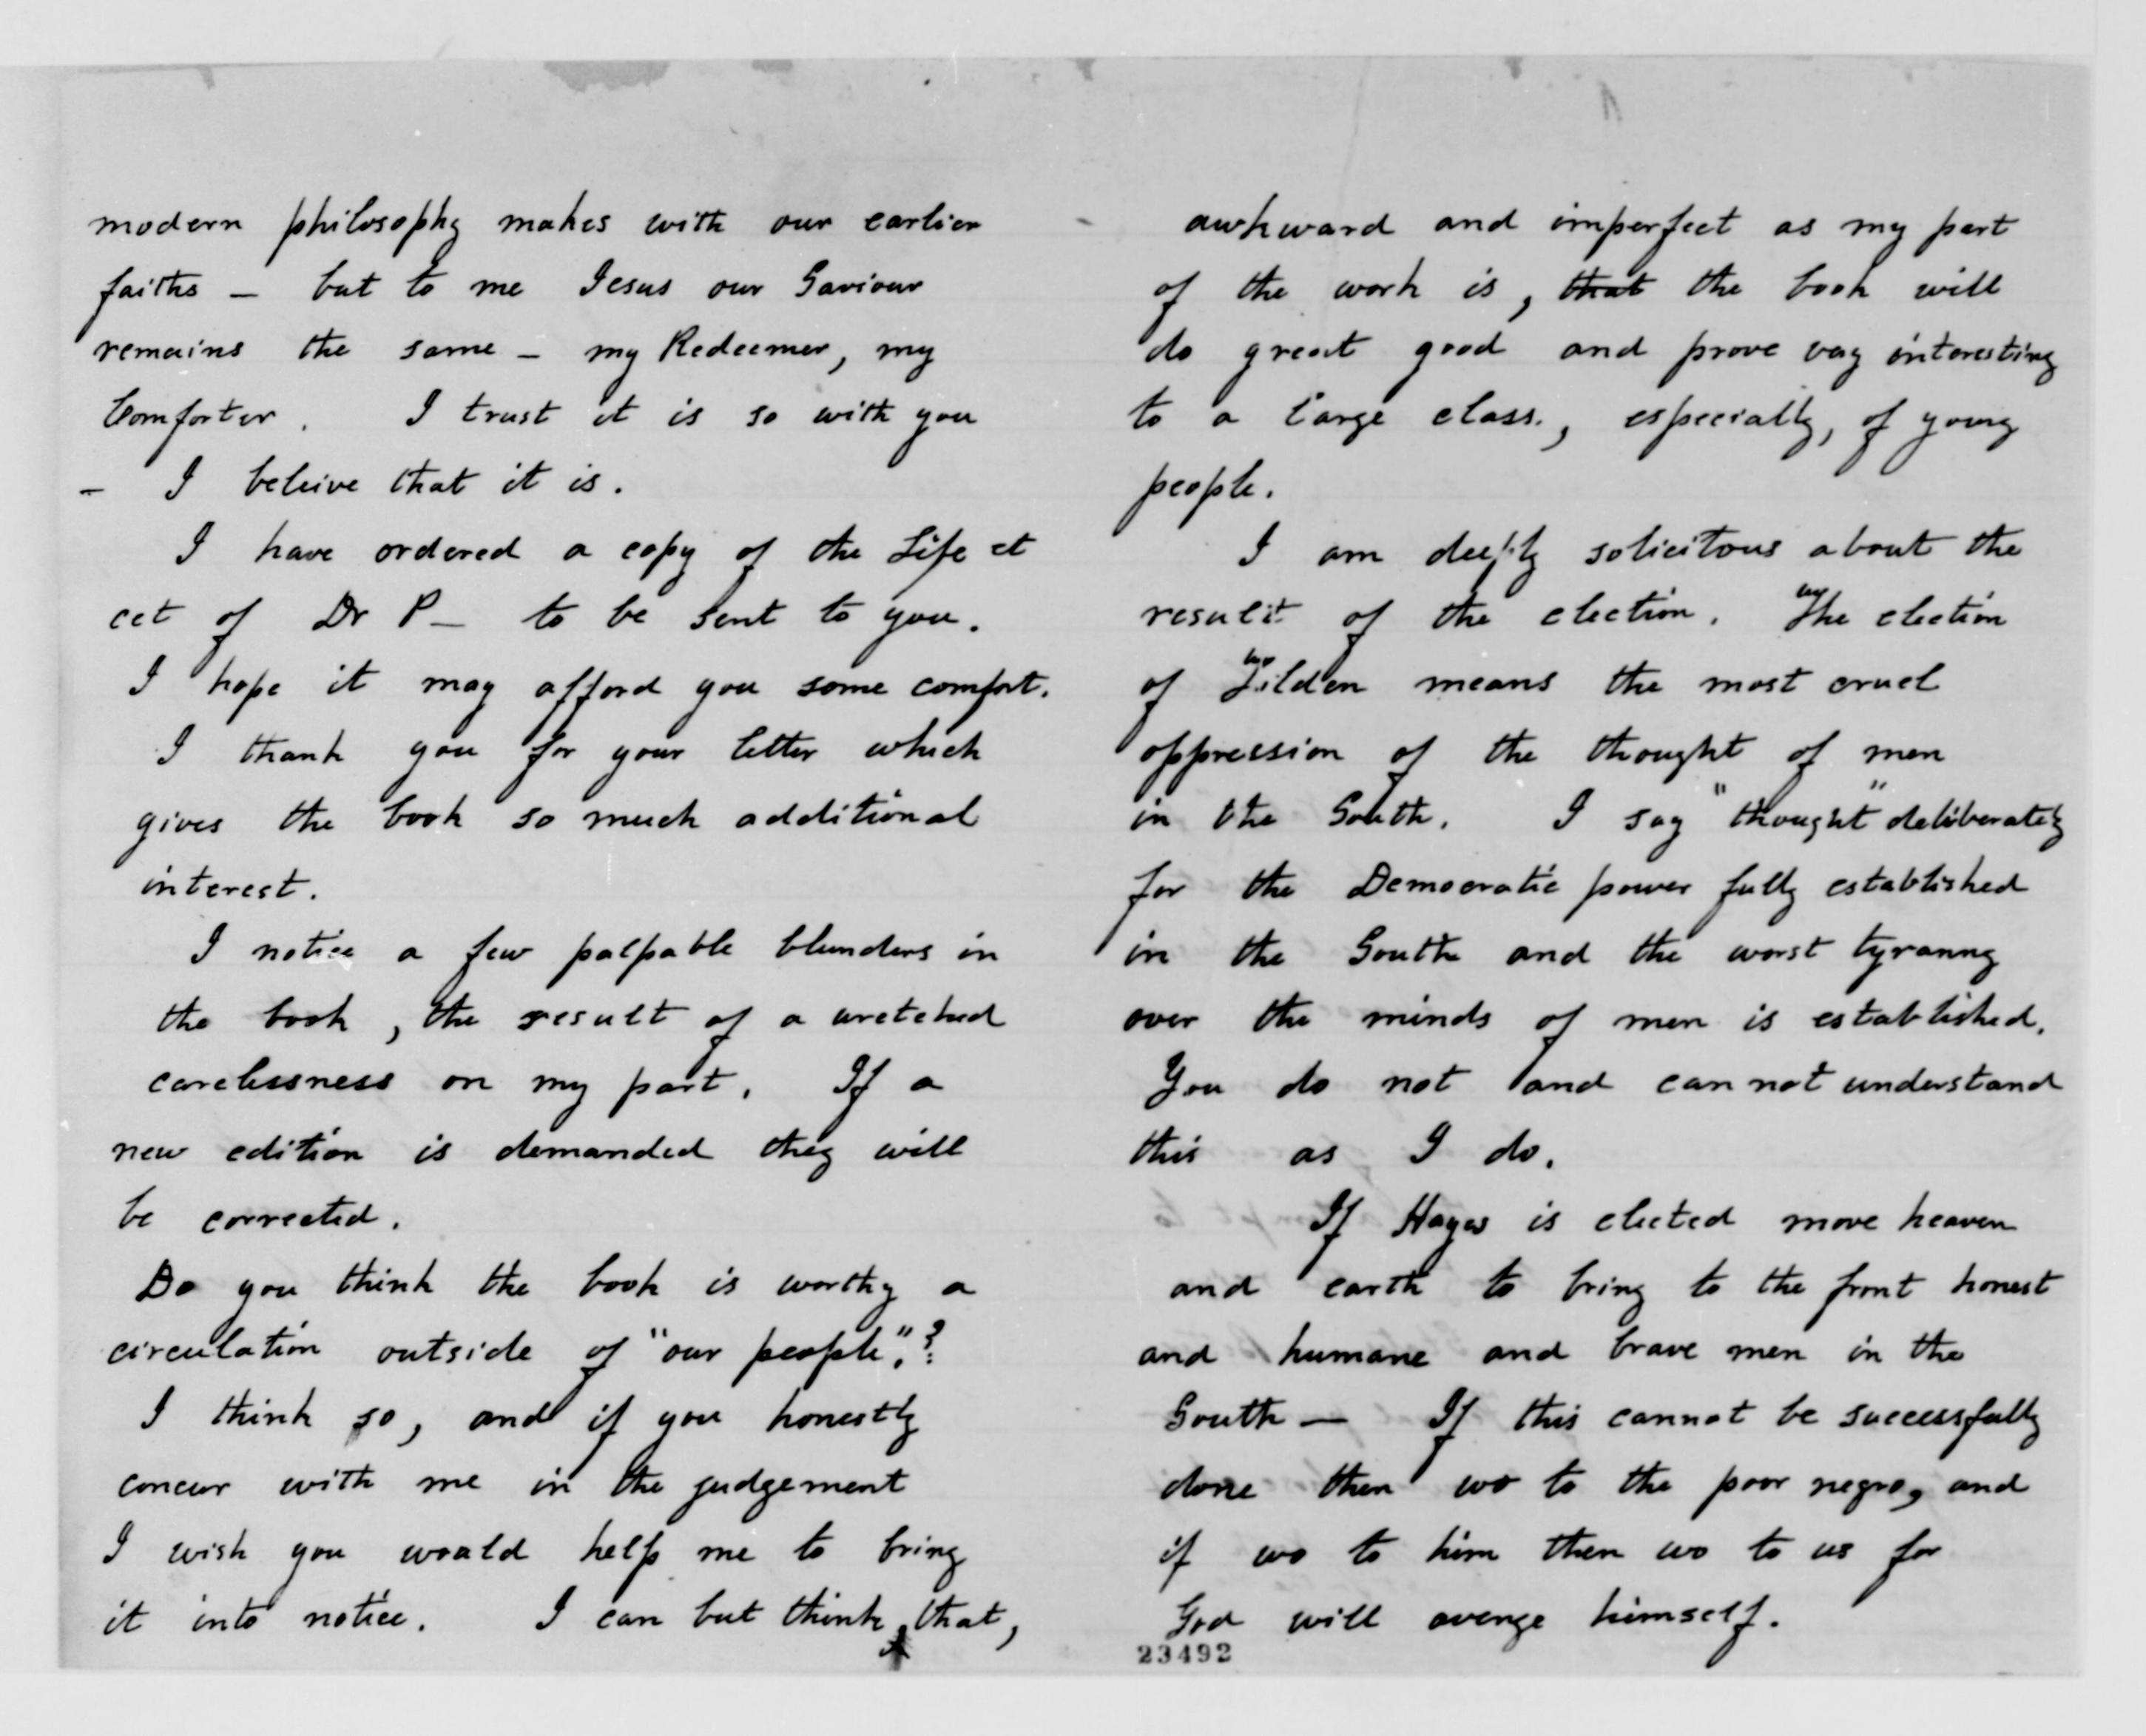 modern philosophy makes with our earlier
faiths — but to me Jesus our Saviour
remains the same — my Redeemer, my
Comforter. I trust it is so with you
— I beleive that it is.
I have ordered a copy of the Life et
cet of Dr P— to be sent to you.
I hope it may afford you some comfort.
I thank you for your letter which
gives the book so much additional
interest.
I notice a few palpable blunders in
the book, the result of a wretched
carelessness on my part. If a
new edition is demanded they will
be corrected.
Do you think the book is worthy a
circulation outside of "our people."?
I think so, and if you honestly
concur with me in the judgement
I wish you would help me to bring
it into notice. I can but think, that,
awkward and imperfect as my part
of the work is, that the book will
do great good and prove very interesting
to a large class., especially, of young
people.
I am deeply solicitous about the
result of the election. The election
of Tilden means the most cruel
oppression of the thought of men
in the South. I say "thought" deliberately
for the Democratic power fully established
in the South and the worst tyranny
over the minds of men is established.
You do not and can not understand
this as I do.
If Hayes is elected move heaven
and earth to bring to the front honest
and humane and brave men in the
South — If this cannot be successfully
done then wo to the poor negro, and
if wo to him then wo to us for
God will avenge himself.
23492